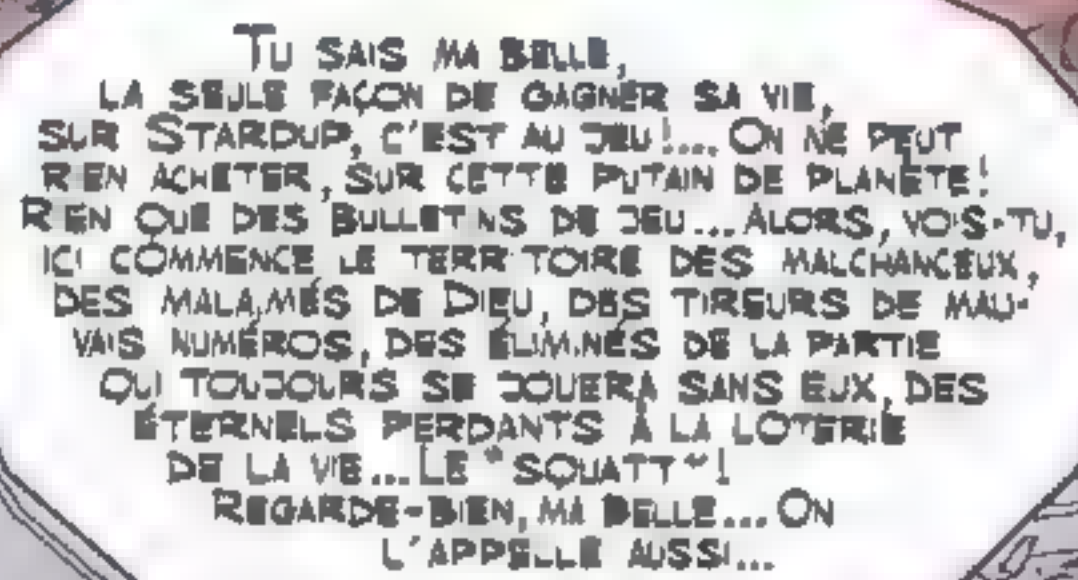 TU SAIS MA BELLE,
LA SEULE FAÇON DE GAGNER SA VIE,
SUR STARDUP, C'EST AU JEU!... ON NE PEUT
RIEN ACHETER, SUR CETTE PUTAIN DE PLANÈTE!
RIEN QUE DES BULLETINS DE JEU... ALORS, VOIS-TU,
ICI COMMENCE LE TERRITOIRE DES MALCHANCEUX,
DES MALAIMÉS DE DIEU, DES TIREURS DE MAU-
VAIS NUMÉROS, DES ÉLIMINÉS DE LA PARTIE
QUI TOUJOURS SE JOUERA SANS EUX, DES
ÉTERNELS PERDANTS À LA LOTERIE
DE LA VIE... LE "SQUATT"!
REGARDE-BIEN, MA BELLE... ON
L'APPELLE AUSSI...